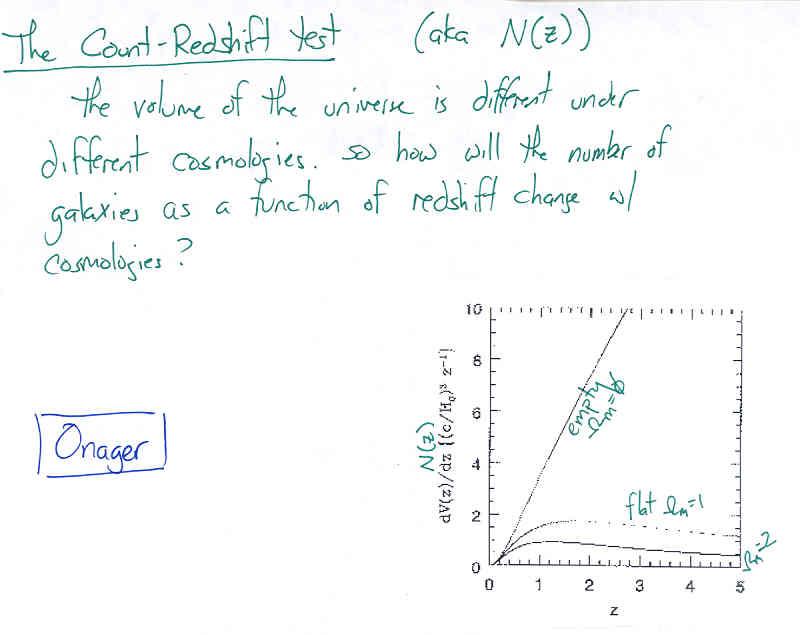 The Count-Redshift test (aka N(z))
the volume of the universe is different under
different cosmologies. so how will the number of
galaxies as a function of redshift change w/
cosmologies?
Onager
N(z)
dV(z)/dz {(c/H₀)³ z⁻¹}
10
8
6
4
2
0
empty
Ωm=0
flat Ωm=1
Ωm=2
0 1 2 3 4 5
z